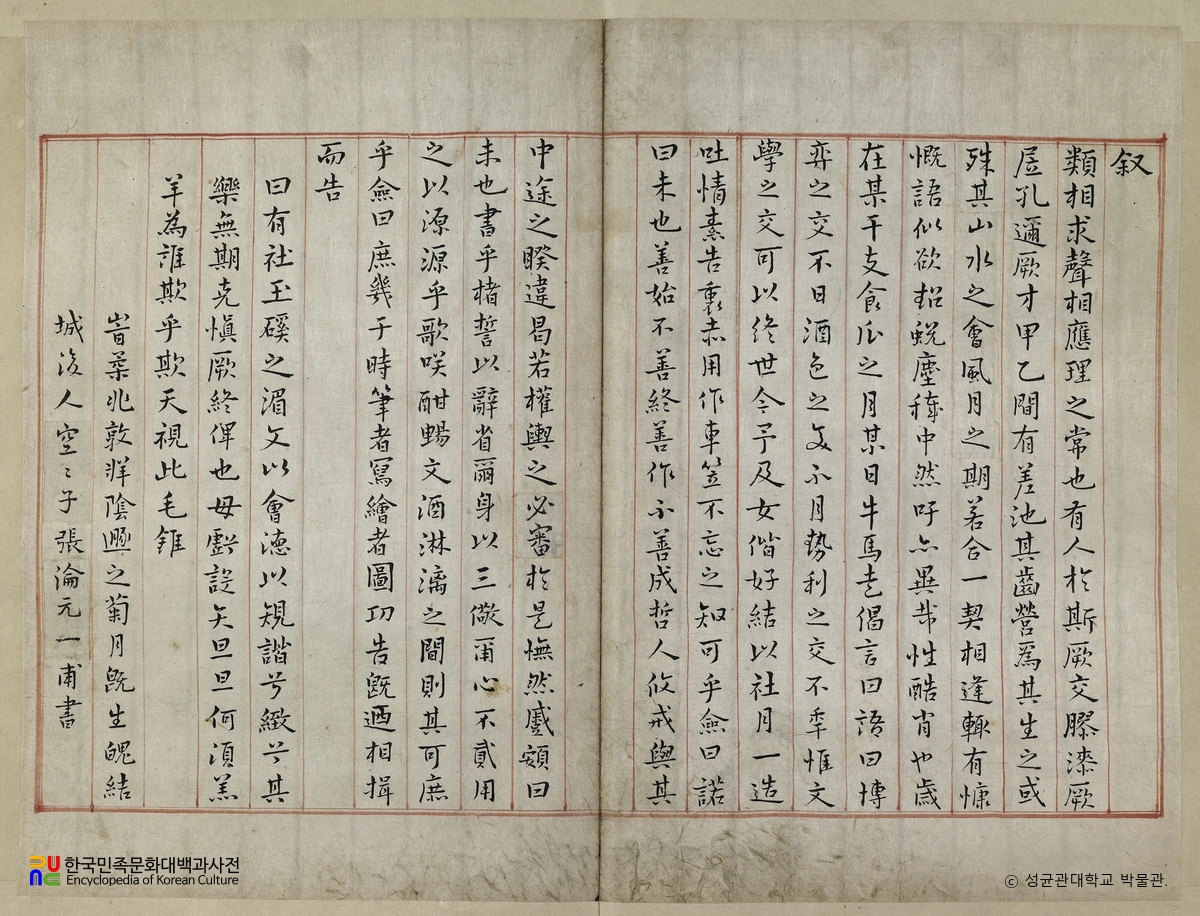 叙
類相求聲相應理之常也有人於斯厥交膠漆厥
居孔邇厥才甲乙間有差池其齒營爲其生之或
殊其山水之會風月之期若合一契相逢輒有慷
慨語似欲超蛻塵穢中然吁亦異哉性酷肖也歲
在某干支食瓜之月某日牛馬走倡言曰語曰博
弈之交不日酒色之交不月勢利之交不年惟文
學之交可以終世今予及女偕好結以社月一造
吐情素告裏赤用作車笠不忘之知可乎僉曰諾
曰未也善始不善終善作不善成哲人攸戒與其
中途之睽違曷若權輿之必審於是憮然蹙頞曰
未也書乎楮誓以辭省爾身以三儆爾心不貳用
之以源源乎歌咲酣觴文酒淋漓之間則其可庶
乎僉曰庶幾于時筆者寫繪者圖功告旣迺相揖
而告
曰有社玉磎之湄文以會德以規諧兮緻兮其
樂無期克愼厥終俾也毋虧設矢旦旦何須羔
羊為誰欺乎欺天視此毛錐
旹柔兆敦牂陰之菊月旣生魄結
城後人空〻子張淪元一甫書
한국민족문화대백과사전
Encyclopedia of Korean Culture
ⓒ 성균관대학교 박물관.